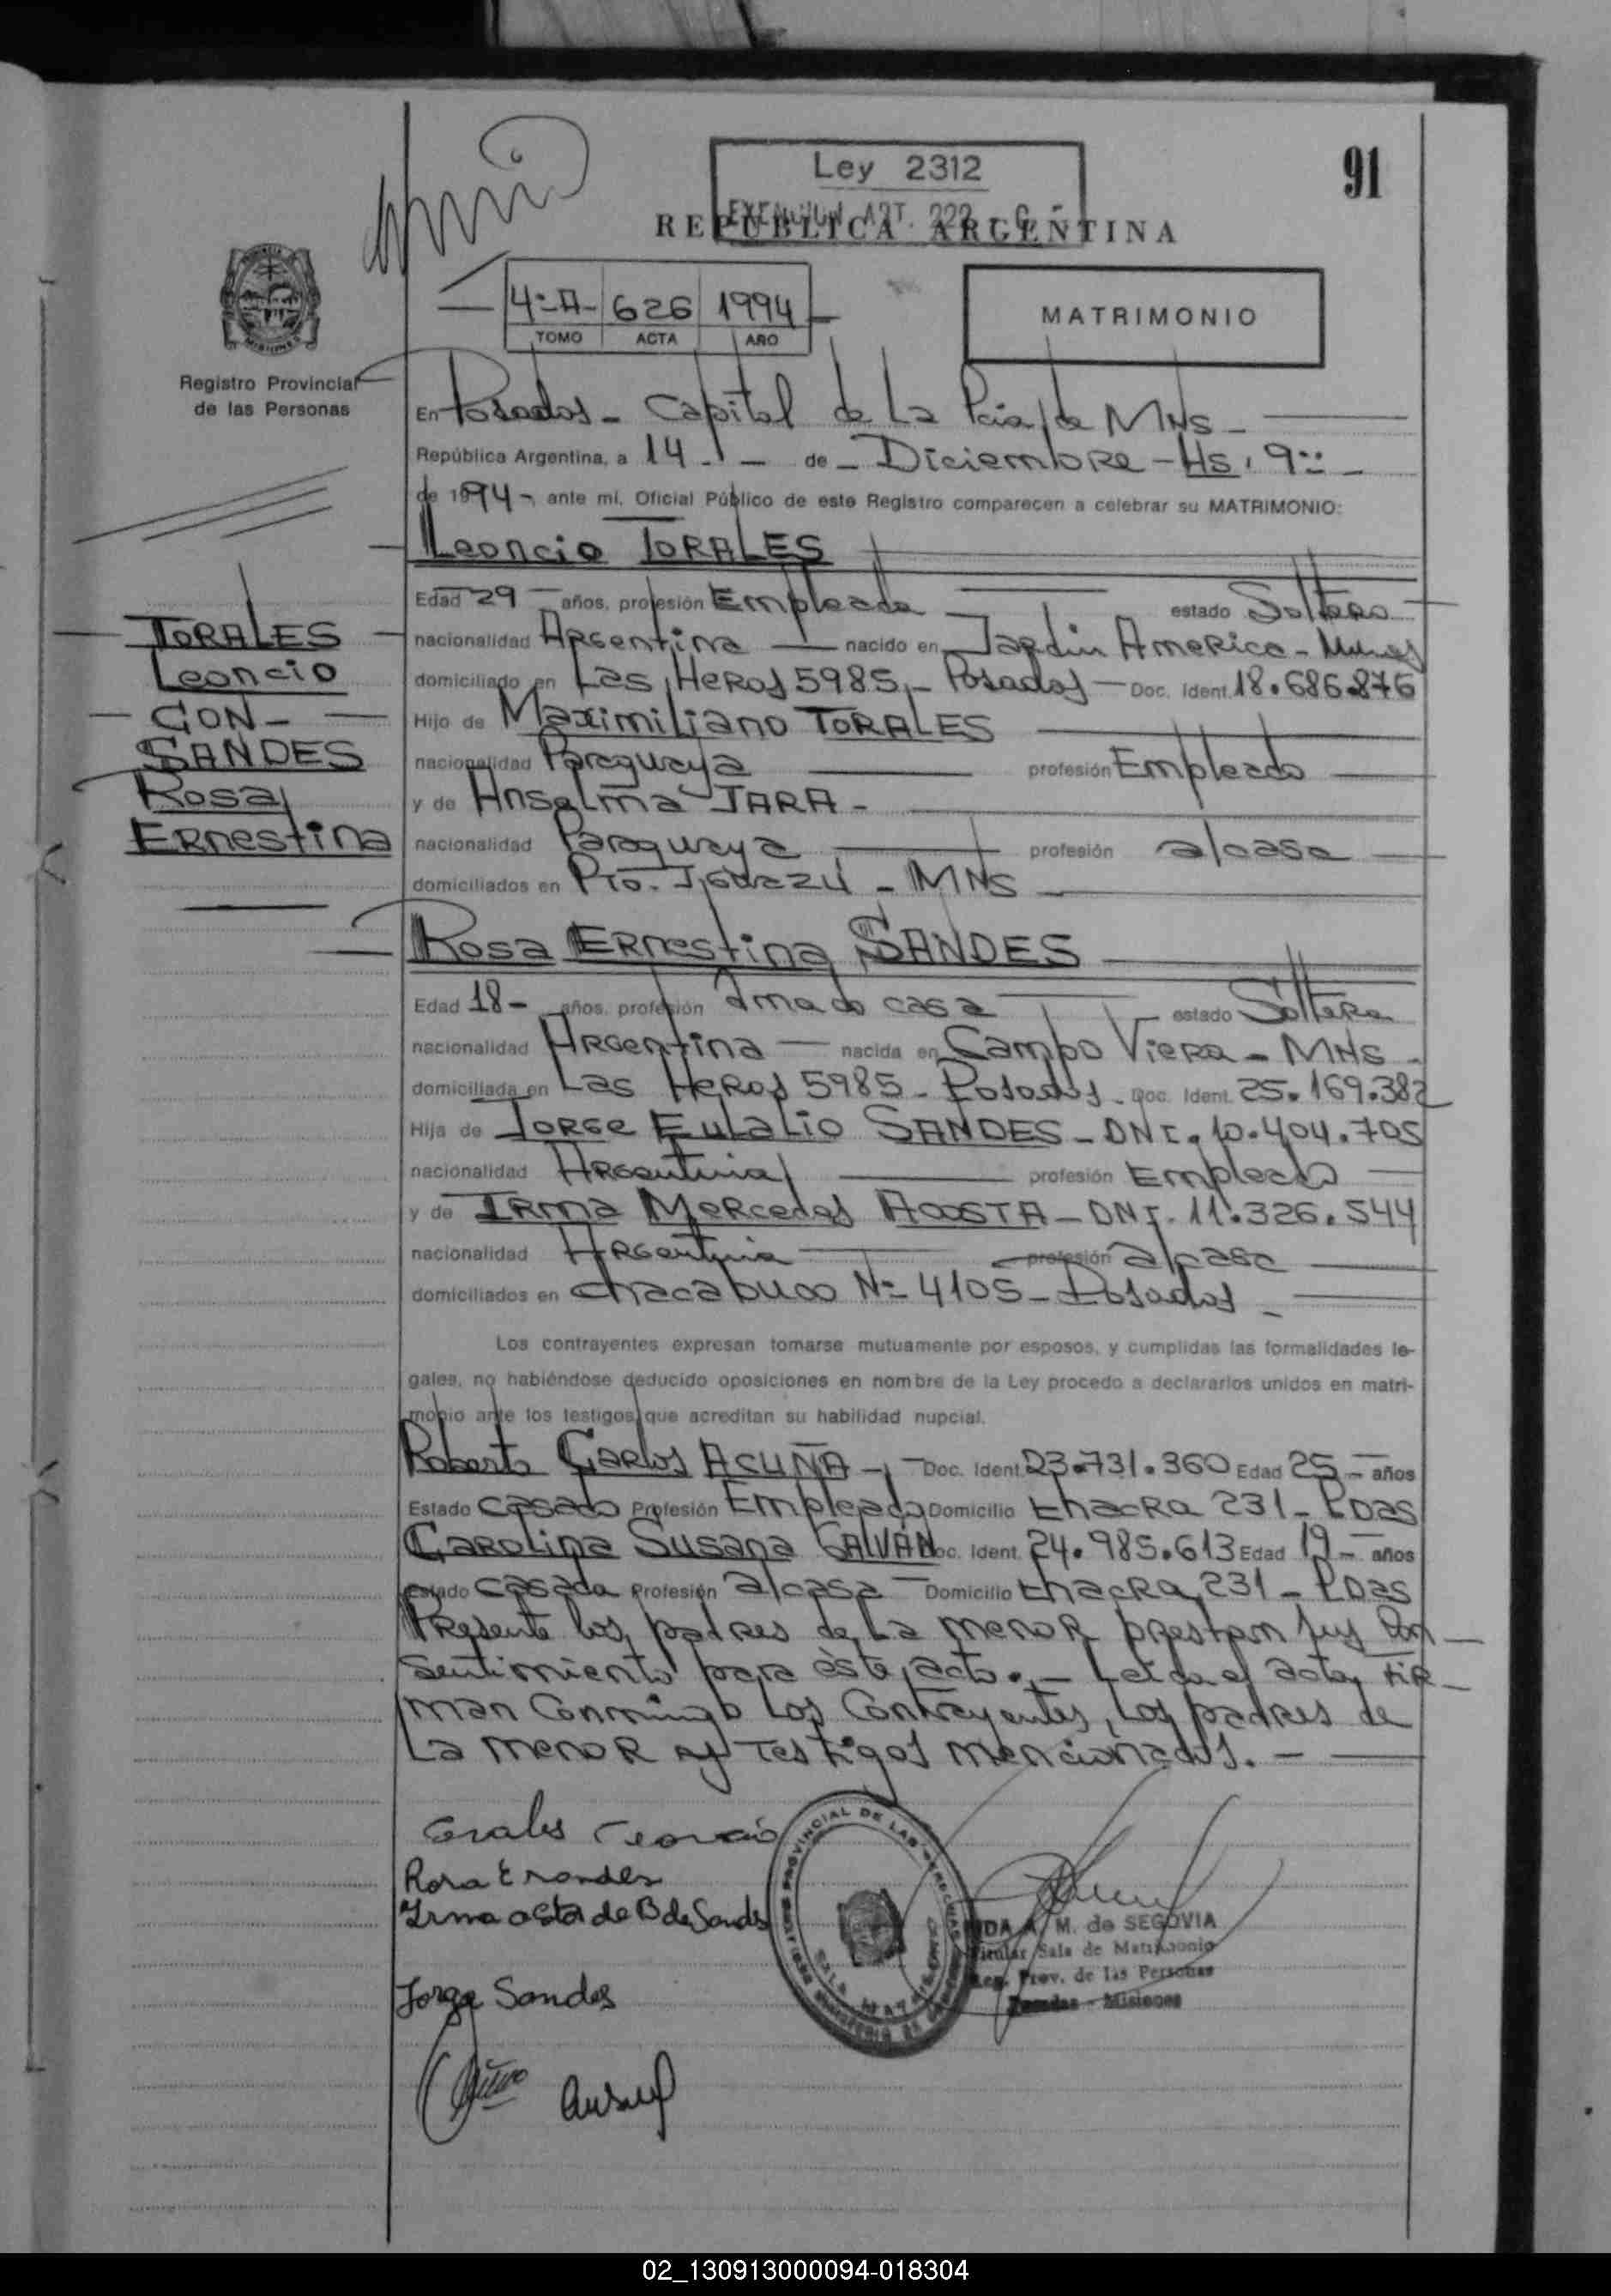 91
Ley 2312
EXENCION ART. 222
REPUBLICA ARGENTINA
4º-A- 626 1994
TOMO ACTA AÑO
MATRIMONIO
MISIONES
Registro Provincial
de las Personas
En Posadas - Capital de La Pcia de MNS -
República Argentina, a 14 - - de - Diciembre - Hs. 9
de 1994 - ante mí, Oficial Público de este Registro comparecen a celebrar su MATRIMONIO:
Leoncio TORALES
Edad 29 años, profesión Empleado estado Soltero
TORALES
Leoncio
CON -
SANDES
Rosa
Ernestina
nacionalidad Argentina nacido en Jardin America - Mnes
domiciliado en Las Heras 5985 - Posadas - Doc. Ident. 18.686.876
Hijo de Maximiliano TORALES
nacionalidad Paraguaya profesión Empleado
y de Anselma JARA -
nacionalidad Paraguaya profesión a/casa
domiciliados en Pto. Iguazú - MNS
Rosa Ernestina SANDES
Edad 18 - años, profesión Ama de casa estado Soltera
nacionalidad Argentina nacida en Campo Viera - MNS -
domiciliada en Las Heras 5985 - Posadas - Doc. Ident. 25.169.382
Hija de Jorge Eulalio SANDES - DNI. 10.404.705
nacionalidad Argentina profesión Empleado
y de Irma Mercedes ACOSTA - DNI. 11.326.544
nacionalidad Argentina profesión a/casa
domiciliados en Chacabuco Nº 4105 - Posadas -
Los contrayentes expresan tomarse mutuamente por esposos, y cumplidas las formalidades le-
gales, no habiéndose deducido oposiciones en nombre de la Ley procedo a declararlos unidos en matri-
monio ante los testigos que acreditan su habilidad nupcial.
Roberto Carlos ACUÑA - Doc. Ident. 23.731.360 Edad 25 - años
Estado Casado Profesión Empleado Domicilio Chacra 231 - Pdas
Carolina Susana GALVÁN Doc. Ident. 24.985.613 Edad 19 - años
Estado Casada Profesión a/casa - Domicilio Chacra 231 - Pdas
Presente los padres de La menor prestan sus Con-
sentimiento para éste acto. - Leida el acta, fir-
man Conmingo Los Contrayentes, Los padres de
La menor y Testigos mencionados. -
Torales Leoncio
Rosa E Sandes
Irma acosta de B de Sandes
Jorge Sandes
PROVINCIAL DE LAS PERSONAS
M. de SEGOVIA
Titular Sala de Matrimonio
Reg. Prov. de las Personas
Posadas - Misiones
02_130913000094-018304